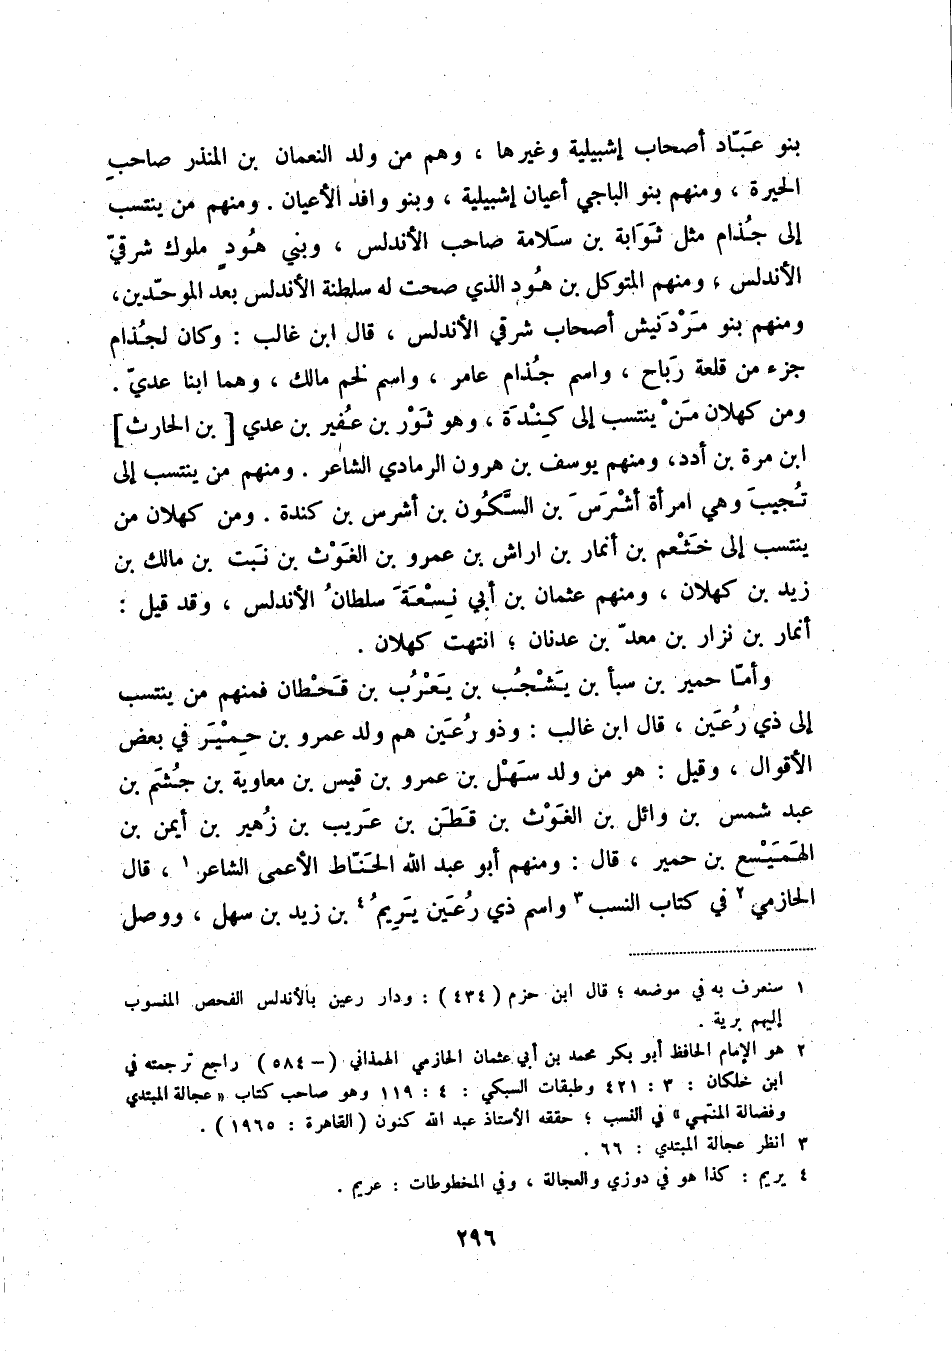 بنو عَبّاد أصحاب إشبيلية وغيرها ، وهم من ولد النعمان بن المنذر صاحبِ
الحيرة ، ومنهم بنو الباجي أعيان إشبيلية ، وبنو وافد الأعيان . ومنهم من ينتسب
إلى جُذام مثل ثَوَابة بن سَلامة صاحب الأندلس ، وبني هُودٍ ملوك شرقيّ
الأندلس ، ومنهم المتوكل بن هُود الذي صحت له سلطنة الأندلس بعد الموحّدين،
ومنهم بنو مَرْدَنيش أصحاب شرقي الأندلس ، قال ابن غالب : وكان لجُذام
جزء من قلعة رَباح ، واسم جُذام عامر ، واسم لخم مالك ، وهما ابنا عديّ .
ومن كهلان مَنْ ينتسب إلى كِنْدَة ، وهو ثَوْر بن عُفَير بن عدي [ بن الحارث ]
ابن مرة بن أدد، ومنهم يوسف بن هرون الرمادي الشاعر . ومنهم من ينتسب إلى
تُجيبَ وهي امرأة أشْرَسَ بن السَّكُون بن أشرس بن كندة . ومن كهلان من
ينتسب إلى خَثْعم بن أنمار بن اراش بن عمرو بن الغَوْث بن نَبت بن مالك بن
زيد بن كهلان ، ومنهم عثمان بن أبي نِسْعَةَ سلطانُ الأندلس ، وقد قيل :
أنمار بن نزار بن معدّ بن عدنان ؛ انتهت كهلان .
وأمّا حمير بن سبأ بن يَشْجُب بن يَعْرُب بن قَحْطان فمنهم من ينتسب
إلى ذي رُعَين ، قال ابن غالب : وذو رُعَين هم ولد عمرو بن حِمْيَر في بعض
الأقوال ، وقيل : هو من ولد سَهْل بن عمرو بن قيس بن معاوية بن جُشَم بن
عبد شمس بن وائل بن الغَوْث بن قَطَن بن عَريب بن زُهير بن أيمن بن
الهَمَيْسع بن حمير ، قال : ومنهم أبو عبد الله الحَنّاط الأعمى الشاعر ١ ، قال
الحازمي ٢ في كتاب النسب ٣ واسم ذي رُعَين يَرِيمُ ٤ بن زيد بن سهل ، ووصل
١ سنعرف به في موضعه ؛ قال ابن حزم (٤٣٤) : ودار رعين بالأندلس الفحص المنسوب
إليهم برية .
٢ هو الإمام الحافظ أبو بكر محمد بن أبي عثمان الحازمي الهمذاني (- ٥٨٤) راجع ترجمته في
ابن خلكان : ٣ : ٤٢١ وطبقات السبكي : ٤ : ١١٩ وهو صاحب كتاب « عجالة المبتدي
وفضالة المنتهي » في النسب ؛ حققه الأستاذ عبد الله كنون (القاهرة : ١٩٦٥) .
٣ انظر عجالة المبتدي : ٦٦ .
٤ يريم : كذا هو في دوزي والعجالة ، وفي المخطوطات : عريم .
٢٩٦